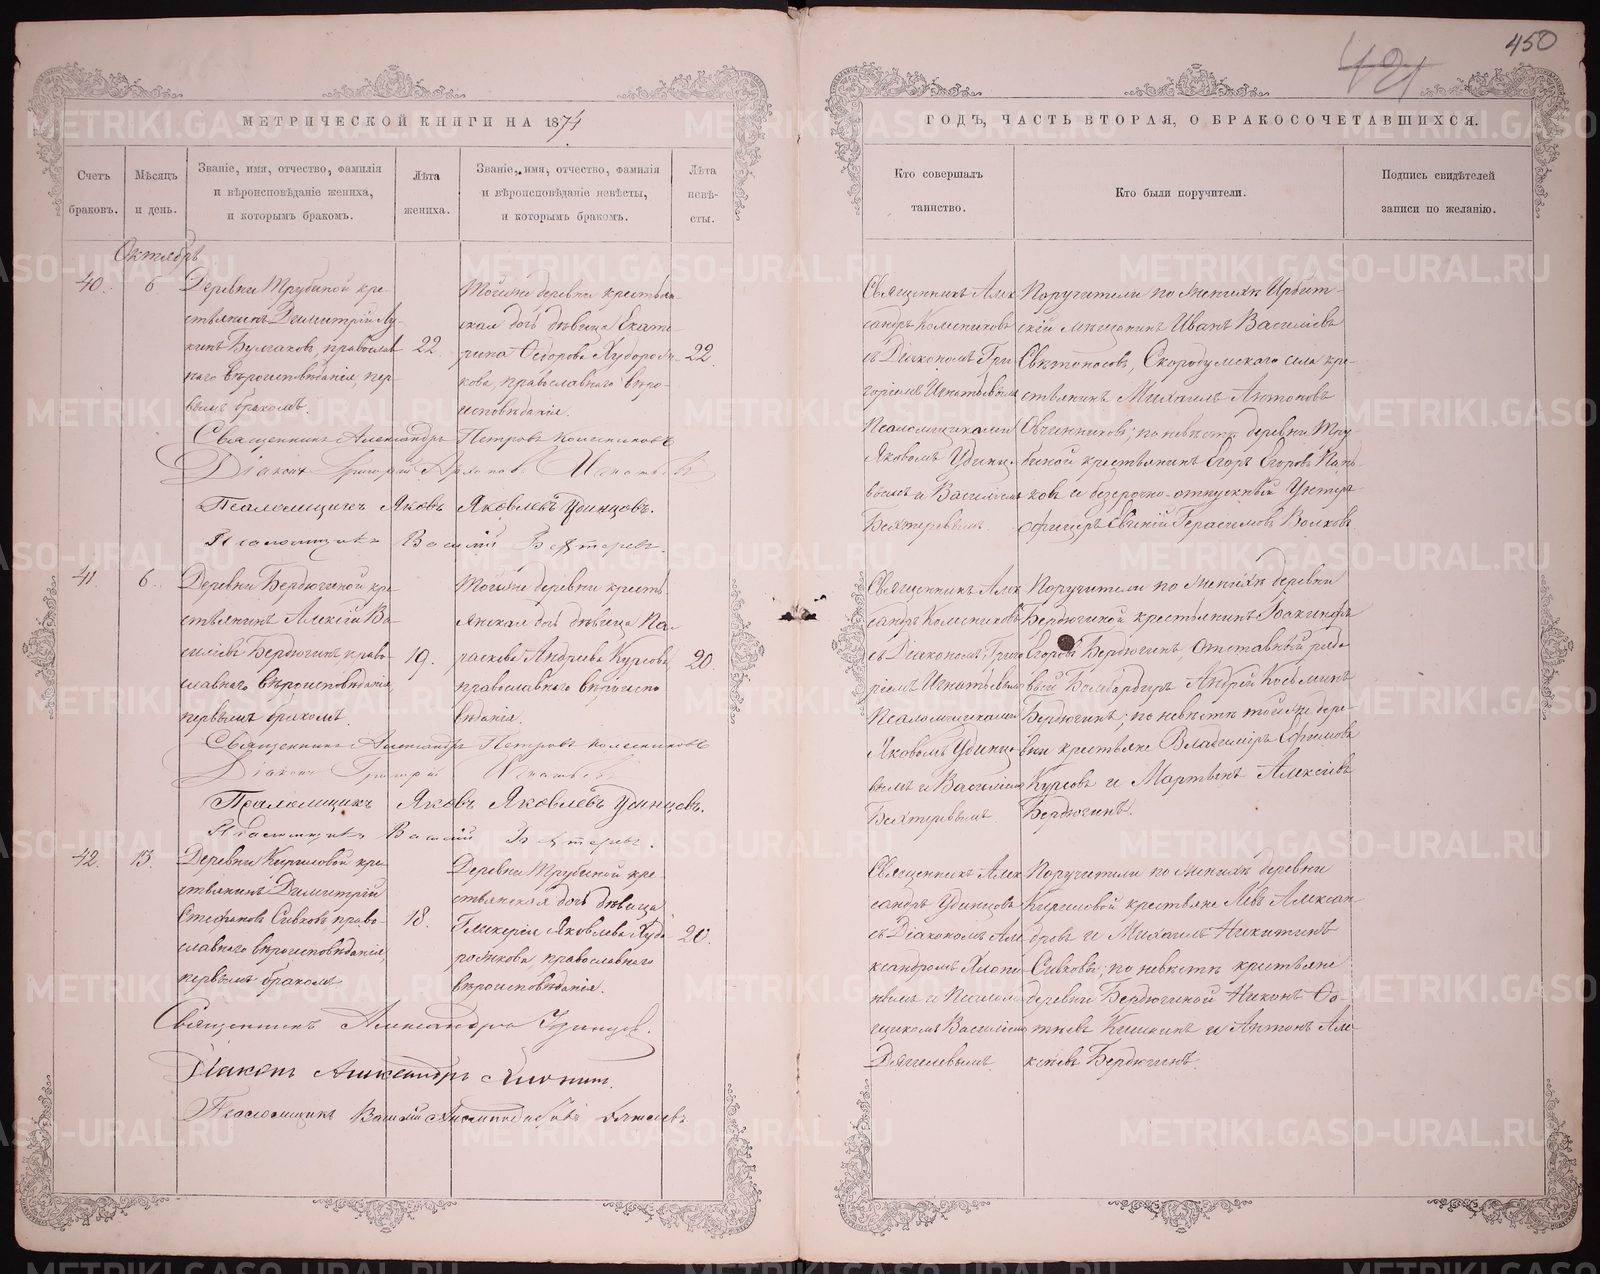 450
421
МЕТРИЧЕСКОЙ КНИГИ НА 1874
ГОДЪ, ЧАСТЬ ВТОРАЯ, О БРАКОСОЧЕТАВШИХСЯ.
Счетъ
браковъ.
Мѣсяцъ
и день.
Званіе, имя, отчество, фамилія
и вѣроисповѣданіе жениха,
и которымъ бракомъ.
Лѣта
жениха.
Званіе, имя, отчество, фамилія
и вѣроисповѣданіе невѣсты,
и которымъ бракомъ.
Лѣта
невѣ-
сты.
Кто совершалъ
таинство.
Кто были поручители.
Подпись свидѣтелей
записи по желанію.
Октябрь
40.
6
Деревни Трубиной кре-
стьянинъ Димитрій Лу-
кинъ Булгаковъ, православ
наго вѣроисповѣданія, пер-
вымъ бракомъ.
22
Тойже деревни крестьян-
ская дочь дѣвица Екате-
рина Ѳедорова Худорож-
кова, православнаго вѣро-
исповѣданія.
22
Священникъ Алек
сандръ Колесниковъ
съ Діакономъ Гри
горіемъ Игнатьевымъ
Псаломщиками
Яковомъ Удинцо-
вымъ и Василіемъ
Бехтеревымъ.
Поручители по женихѣ Ирбит-
скій мѣщанинъ Иванъ Васильевъ
Свѣтоносовъ, Скородумскаго села кре-
стьянинъ Михаилъ Антоновъ
Овчинниковъ; по невѣстѣ деревни Тру
биной крестьянинъ Егоръ Егоровъ
и безсрочно-отпускный Унтеръ
офицеръ Евгеній Герасимовъ Волковъ
Священникъ Александръ Петровъ Колесниковъ
Діаконъ Григорій Игнатьевъ
Псаломщикъ Яковъ Яковлевъ Удинцовъ.
Псаломщикъ Василій Бехтеревъ.
41.
6.
Деревни Бердюгиной кре
стьянинъ Алексій Ва-
сильевъ Бердюгинъ, право-
славнаго вѣроисповѣданія,
первымъ бракомъ.
19.
Тойже деревни кресть
янская дочь дѣвица Па-
раскева Андреева Курсова,
православнаго вѣроиспо
вѣданія.
20.
Священникъ Алек
сандръ Колесниковъ
съ Діакономъ Григо
ріемъ Игнатьевымъ
Псаломщиками
Яковомъ Удинцо-
вымъ и Василіемъ
Бехтеревымъ.
Поручители по женихѣ деревни
Бердюгиной крестьянинъ Іоакинфъ
Егоровъ Бердюгинъ, отставный рядо
вый Бомбардиръ Андрей Косьминъ
Бердюгинъ; по невѣстѣ тойже дере-
вни крестьяне Владиміръ Ефимовъ
Курсовъ и Мартинъ Алексіевъ
Бердюгинъ.
Священникъ Александръ Петровъ Колесниковъ
Діаконъ Григорій Игнатьевъ
Псаломщикъ Яковъ Яковлевъ Удинцовъ.
Псаломщикъ Василій Бехтеревъ.
42.
13.
Деревни Кириловой кре
стьянинъ Димитрій
Стефановъ Сивковъ, право-
славнаго вѣроисповѣданія,
первымъ бракомъ
18.
Деревни Трубиной кре
стьянская дочь дѣвица
Гликерія Яковлева Худо
рожкова, православнаго
вѣроисповѣданія.
20.
Священникъ Алек
сандръ Удинцовъ
съ Діакономъ Але
ксандромъ Хлопи
нымъ и Псалом
щикомъ Василіемъ
Дягилевымъ.
Поручители по женихѣ деревни
Кириловой крестьяне Левъ Алексан
дровъ и Михаилъ Никитинъ
Сивковы; по невѣстѣ крестьяне
деревни Бердюгиной Никонъ Фо-
тіевъ Кишкинъ и Антонъ Але-
ксіевъ Бердюгинъ.
Священникъ Александръ Удинцовъ.
Діаконъ Александръ Хлопинъ.
Псаломщикъ Василій Дягилевъ